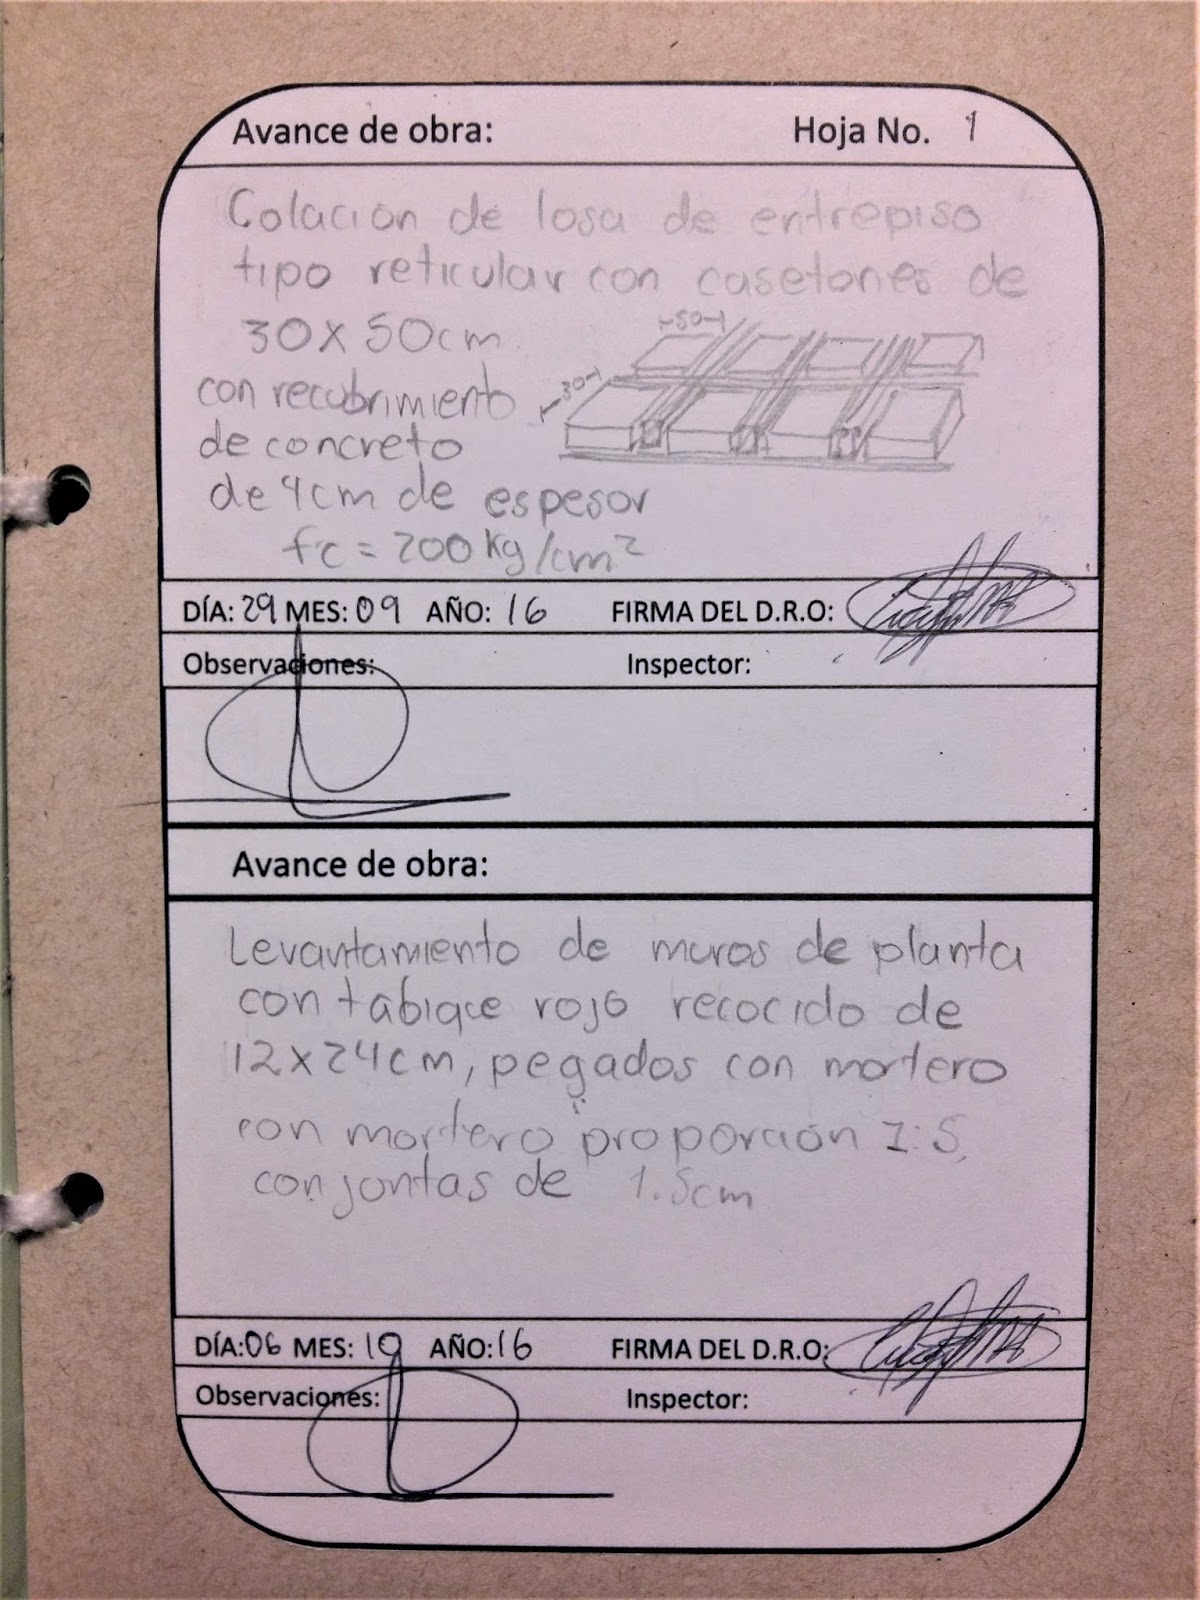 Avance de obra: Hoja No. 1
Colación de losa de entrepiso
tipo reticular con casetones de
30x50cm.
50
30
con recubrimiento
de concreto
de 4cm de espesor
f'c = 200 kg/cm²
DÍA: 29 MES: 09 AÑO: 16 FIRMA DEL D.R.O:
Observaciones: Inspector:
Avance de obra:
Levantamiento de muros de planta
con tabique rojo recocido de
12x24cm, pegados con mortero
con mortero proporción 1:5,
con juntas de 1.5cm
DÍA: 06 MES: 10 AÑO: 16 FIRMA DEL D.R.O:
Observaciones: Inspector: